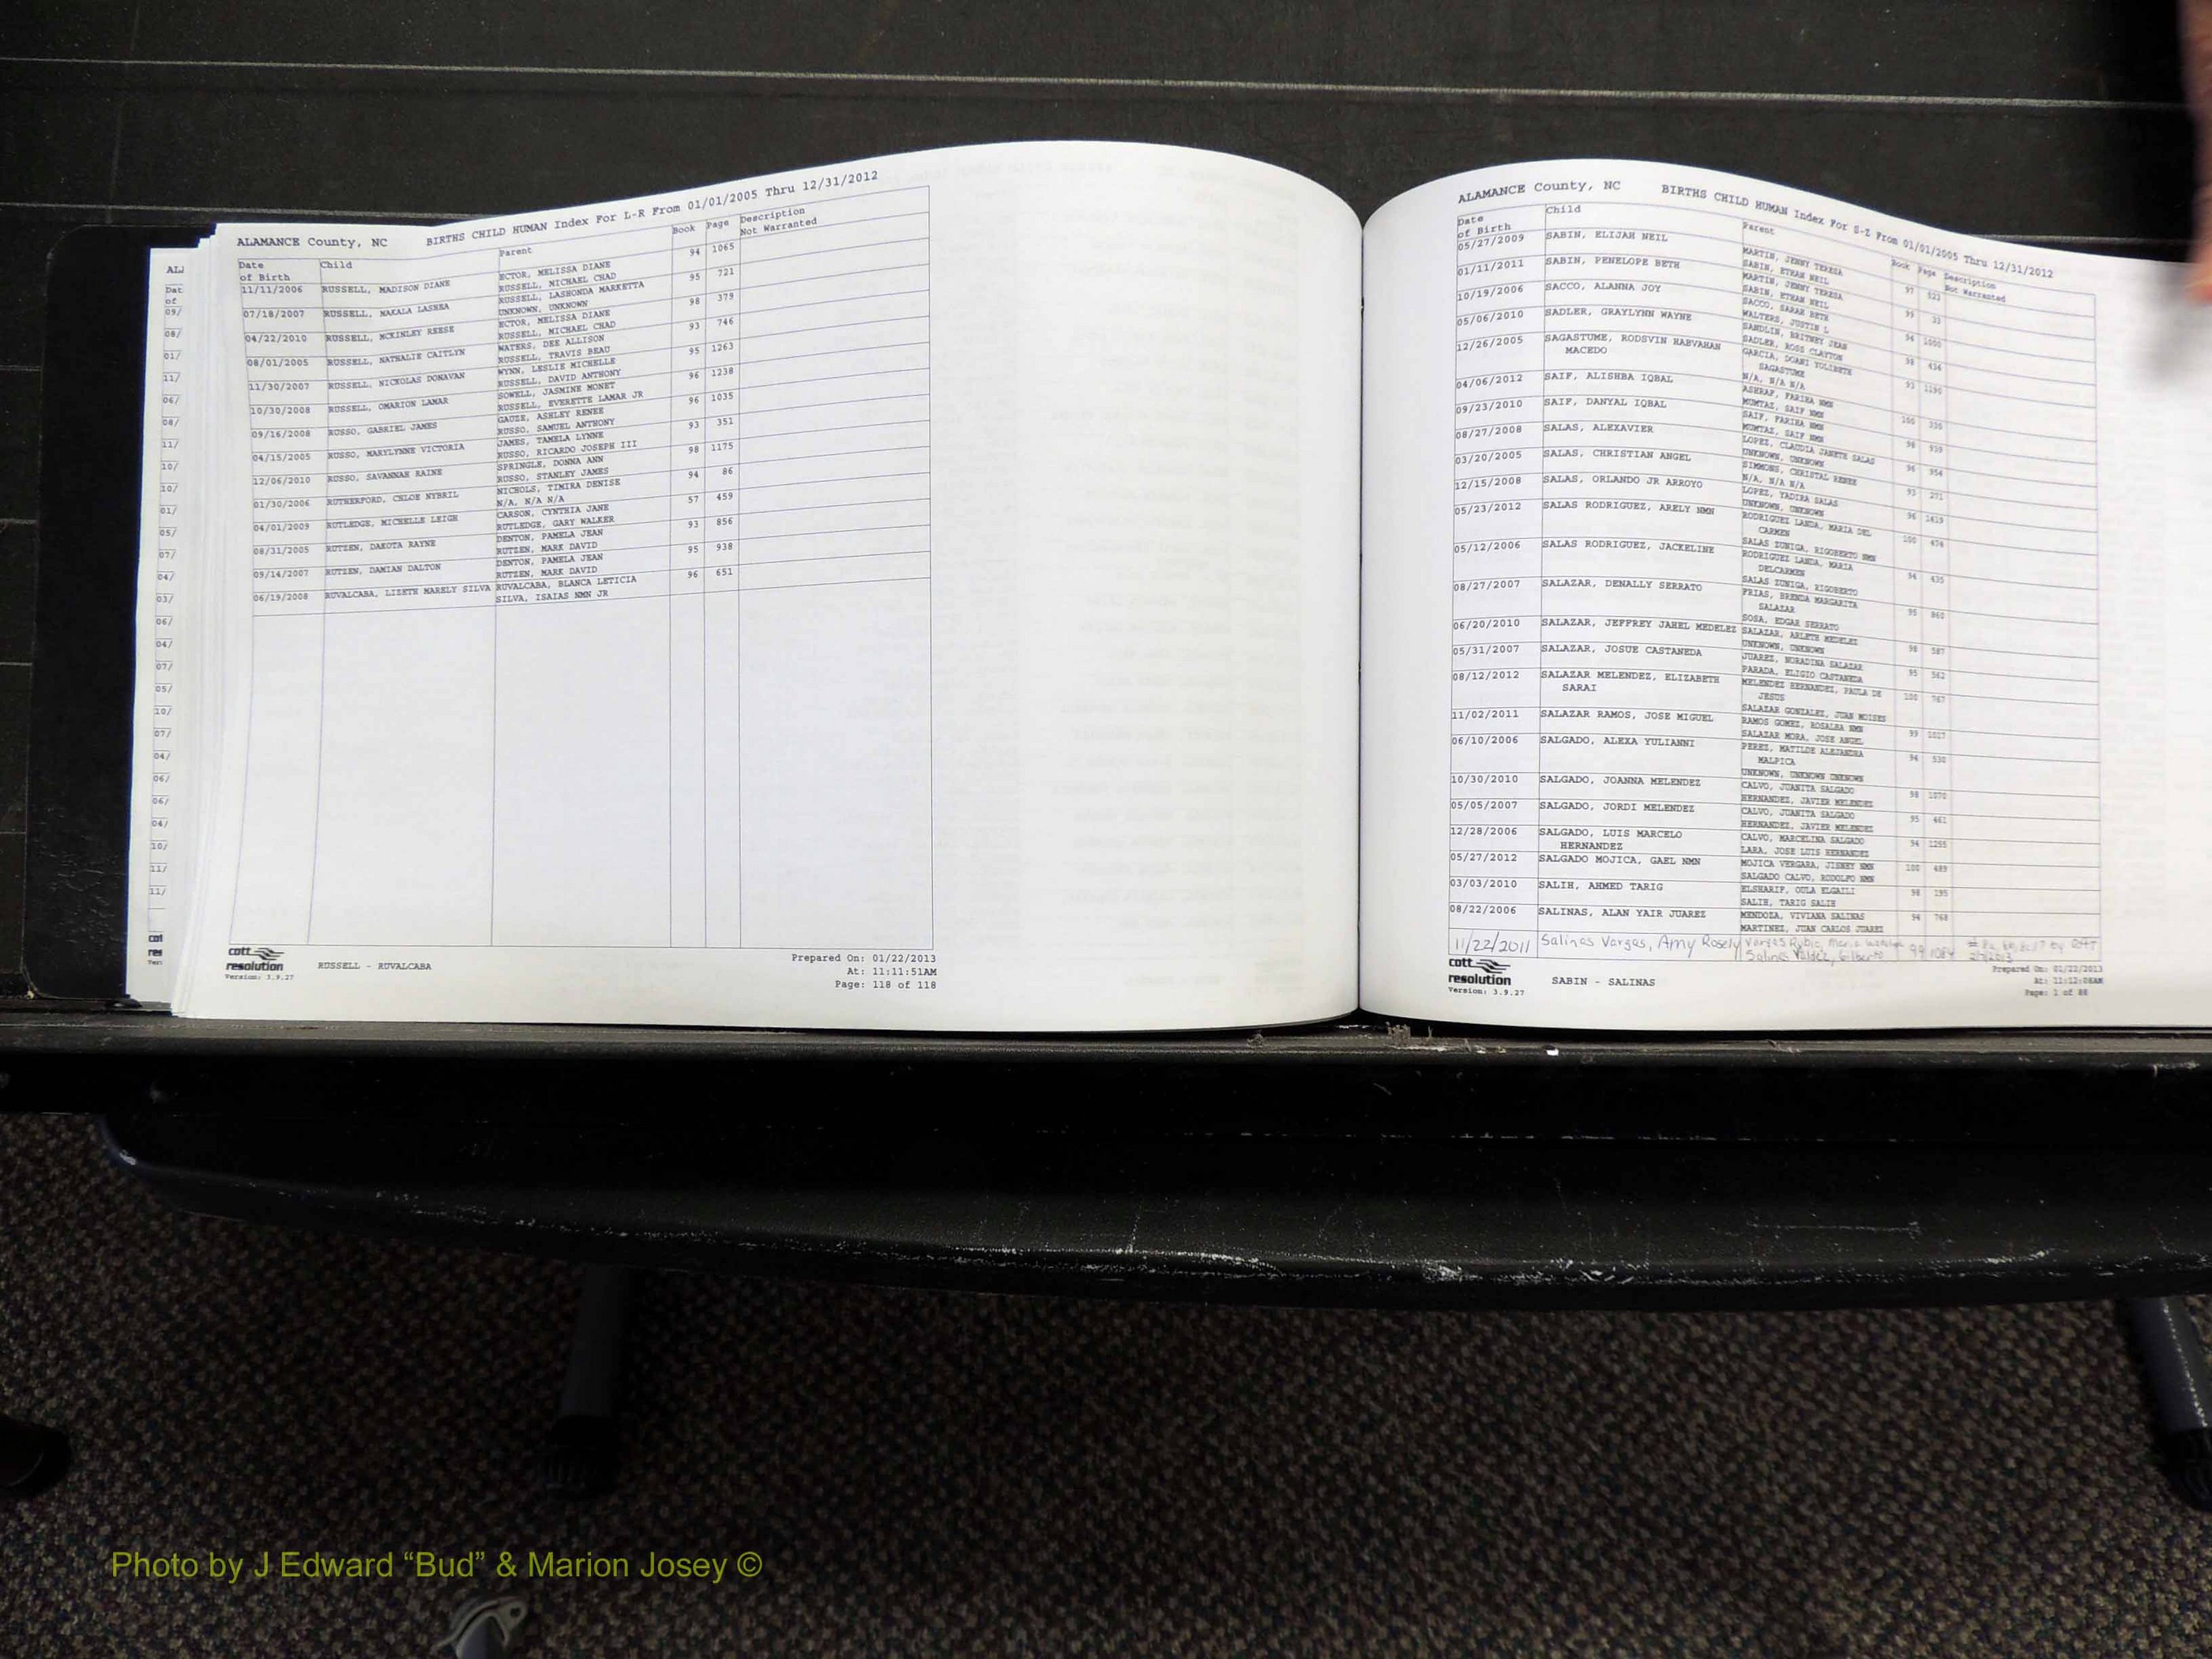 ALAMANCE County, NC BIRTHS CHILD HUMAN Index For L-R From 01/01/2005 Thru 12/31/2012
Date of Birth Child Parent Book Page Description Not Warranted
11/11/2006 RUSSELL, MADISON DIANE ECTOR, MELISSA DIANE 94 1065
RUSSELL, MICHAEL CHAD
07/18/2007 RUSSELL, MAKALA LASHEA RUSSELL, LASHONDA MARKETTA 95 721
UNKNOWN, UNKNOWN
04/22/2010 RUSSELL, MCKINLEY REESE ECTOR, MELISSA DIANE 98 379
RUSSELL, MICHAEL CHAD
08/01/2005 RUSSELL, NATHALIE CAITLYN WATERS, DEE ALLISON 93 746
RUSSELL, TRAVIS BEAU
11/30/2007 RUSSELL, NICKOLAS DONAVAN WYNN, LESLIE MICHELLE 95 1263
RUSSELL, DAVID ANTHONY
10/30/2008 RUSSELL, OMARION LAMAR SOWELL, JASMINE MONET 96 1238
RUSSELL, EVERETTE LAMAR JR
09/16/2008 RUSSO, GABRIEL JAMES GAUZE, ASHLEY RENEE 96 1035
RUSSO, SAMUEL ANTHONY
04/15/2005 RUSSO, MARYLYNNE VICTORIA JAMES, TAMELA LYNNE 93 351
RUSSO, RICARDO JOSEPH III
12/06/2010 RUSSO, SAVANNAH RAINE SPRINGLE, DONNA ANN 98 1175
RUSSO, STANLEY JAMES
01/30/2006 RUTHERFORD, CHLOE NYBRIL NICHOLS, TIMIRA DENISE 94 86
N/A, N/A N/A
04/01/2009 RUTLEDGE, MICHELLE LEIGH CARSON, CYNTHIA JANE 57 459
RUTLEDGE, GARY WALKER
08/31/2005 RUTZEN, DAKOTA RAYNE DENTON, PAMELA JEAN 93 856
RUTZEN, MARK DAVID
09/14/2007 RUTZEN, DAMIAN DALTON DENTON, PAMELA JEAN 95 938
RUTZEN, MARK DAVID
06/19/2008 RUVALCABA, LIZETH MARELY SILVA RUVALCABA, BLANCA LETICIA 96 651
SILVA, ISAIAS NMN JR
cott resolution
Version: 3.9.27
RUSSELL - RUVALCABA
Prepared On: 01/22/2013
At: 11:11:51AM
Page: 118 of 118
ALAMANCE County, NC BIRTHS CHILD HUMAN Index For S-Z From 01/01/2005 Thru 12/31/2012
Date of Birth Child Parent Book Page Description Not Warranted
05/27/2009 SABIN, ELIJAH NEIL MARTIN, JENNY TERESA 97 523
SABIN, ETHAN NEIL
01/11/2011 SABIN, PENELOPE BETH MARTIN, JENNY TERESA 99 33
SABIN, ETHAN NEIL
10/19/2006 SACCO, ALANNA JOY SACCO, SARAH BETH 94 1000
WALTERS, JUSTIN L
05/06/2010 SADLER, GRAYLYNN WAYNE SANDLIN, BRITNEY JEAN 98 434
SADLER, ROSS CLAYTON
12/26/2005 SAGASTUME, RODSVIN HABVAHAN MACEDO GARCIA, DOANI YOLIBETH SAGASTUME 93 1190
N/A, N/A N/A
04/06/2012 SAIF, ALISHBA IQBAL ASHRAF, FARIHA NMN 100 336
MUMTAZ, SAIF NMN
09/23/2010 SAIF, DANYAL IQBAL SAIF, FARIHA NMN 98 939
MUMTAZ, SAIF NMN
08/27/2008 SALAS, ALEXAVIER LOPEZ, CLAUDIA JANETH SALAS 96 954
UNKNOWN, UNKNOWN
03/20/2005 SALAS, CHRISTIAN ANGEL SIMMONS, CHRISTAL RENEE 93 271
N/A, N/A N/A
12/15/2008 SALAS, ORLANDO JR ARROYO LOPEZ, YADIRA SALAS 96 1419
UNKNOWN, UNKNOWN
05/23/2012 SALAS RODRIGUEZ, ARELY NMN RODRIGUEZ LANDA, MARIA DEL CARMEN 100 474
SALAS ZUNIGA, RIGOBERTO NMN
05/12/2006 SALAS RODRIGUEZ, JACKELINE RODRIGUEZ LANDA, MARIA DELCARMEN 94 435
SALAS ZUNIGA, RIGOBERTO
08/27/2007 SALAZAR, DENALLY SERRATO FRIAS, BRENDA MARGARITA SALAZAR 95 860
SOSA, EDGAR SERRATO
06/20/2010 SALAZAR, JEFFREY JAHEL MEDELEZ SALAZAR, ARLETH MEDELEZ 98 587
UNKNOWN, UNKNOWN
05/31/2007 SALAZAR, JOSUE CASTANEDA JUAREZ, NORADINA SALAZAR 95 562
PARADA, ELIGIO CASTANEDA
08/12/2012 SALAZAR MELENDEZ, ELIZABETH SARAI MELENDEZ HERNANDEZ, PAULA DE JESUS 100 767
SALAZAR GONZALEZ, JUAN MOISES
11/02/2011 SALAZAR RAMOS, JOSE MIGUEL RAMOS GOMEZ, ROSALBA NMN 99 1027
SALAZAR MORA, JOSE ANGEL
06/10/2006 SALGADO, ALEXA YULIANNI PEREZ, MATILDE ALEJANDRA MALPICA 94 530
UNKNOWN, UNKNOWN UNKNOWN
10/30/2010 SALGADO, JOANNA MELENDEZ CALVO, JUANITA SALGADO 98 1070
HERNANDEZ, JAVIER MELENDEZ
05/05/2007 SALGADO, JORDI MELENDEZ CALVO, JUANITA SALGADO 95 461
HERNANDEZ, JAVIER MELENDEZ
12/28/2006 SALGADO, LUIS MARCELO HERNANDEZ CALVO, MARCELINA SALGADO 94 1255
LARA, JOSE LUIS HERNANDEZ
05/27/2012 SALGADO MOJICA, GAEL NMN MOJICA VERGARA, JISNEY NMN 100 489
SALGADO CALVO, RODOLFO NMN
03/03/2010 SALIH, AHMED TARIG ELSHARIF, OULA ELGAILI 98 195
SALIH, TARIG SALIH
08/22/2006 SALINAS, ALAN YAIR JUAREZ MENDOZA, VIVIANA SALINAS 94 768
MARTINEZ, JUAN CARLOS JUAREZ
11/22/2011 Salinas Vargas, Amy Rosely Vargas Rubio, Maria 99 1084
Salinas Valdez, Gilberto
cott resolution
Version: 3.9.27
SABIN - SALINAS
Prepared On: 01/22/2013
At: 11:12:08AM
Page: 1 of 88
Photo by J Edward “Bud” & Marion Josey ©